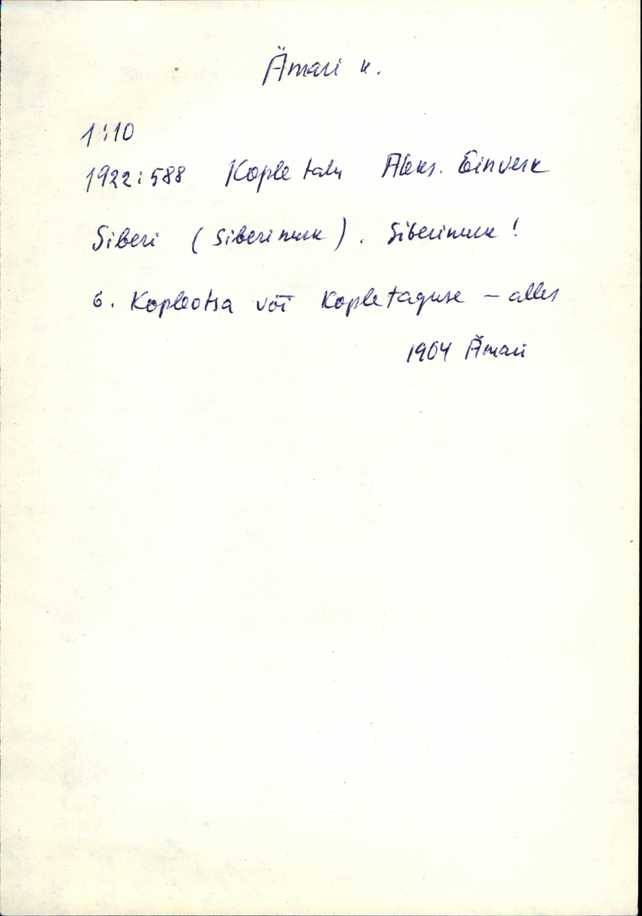 Ämari k.
1:10
1922:588 Kople talu Aleks. Einverk
Siberi (Siberinurk). Siberinurk!
6. Kopleotsa või Kopletaguse – alles
1964 Ämari